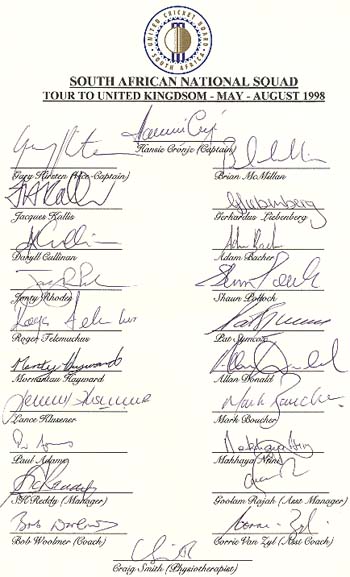 UNITED CRICKET BOARD
SOUTH AFRICA
SOUTH AFRICAN NATIONAL SQUAD
TOUR TO UNITED KINGDSOM - MAY - AUGUST 1998
Hansie Cronje (Captain)
Gary Kirsten (Vice-Captain) Brian McMillan
Jacques Kallis Gerhardus Liebenberg
Daryll Cullinan Adam Bacher
Jonty Rhodes Shaun Pollock
Roger Telemachus Pat Symcox
Mornantau Hayward Allan Donald
Lance Klusener Mark Boucher
Paul Adams Makhaya Ntini
SK Reddy (Manager) Goolam Rajah (Asst Manager)
Bob Woolmer (Coach) Corrie Van Zyl (Asst Coach)
Craig Smith (Physiotherapist)